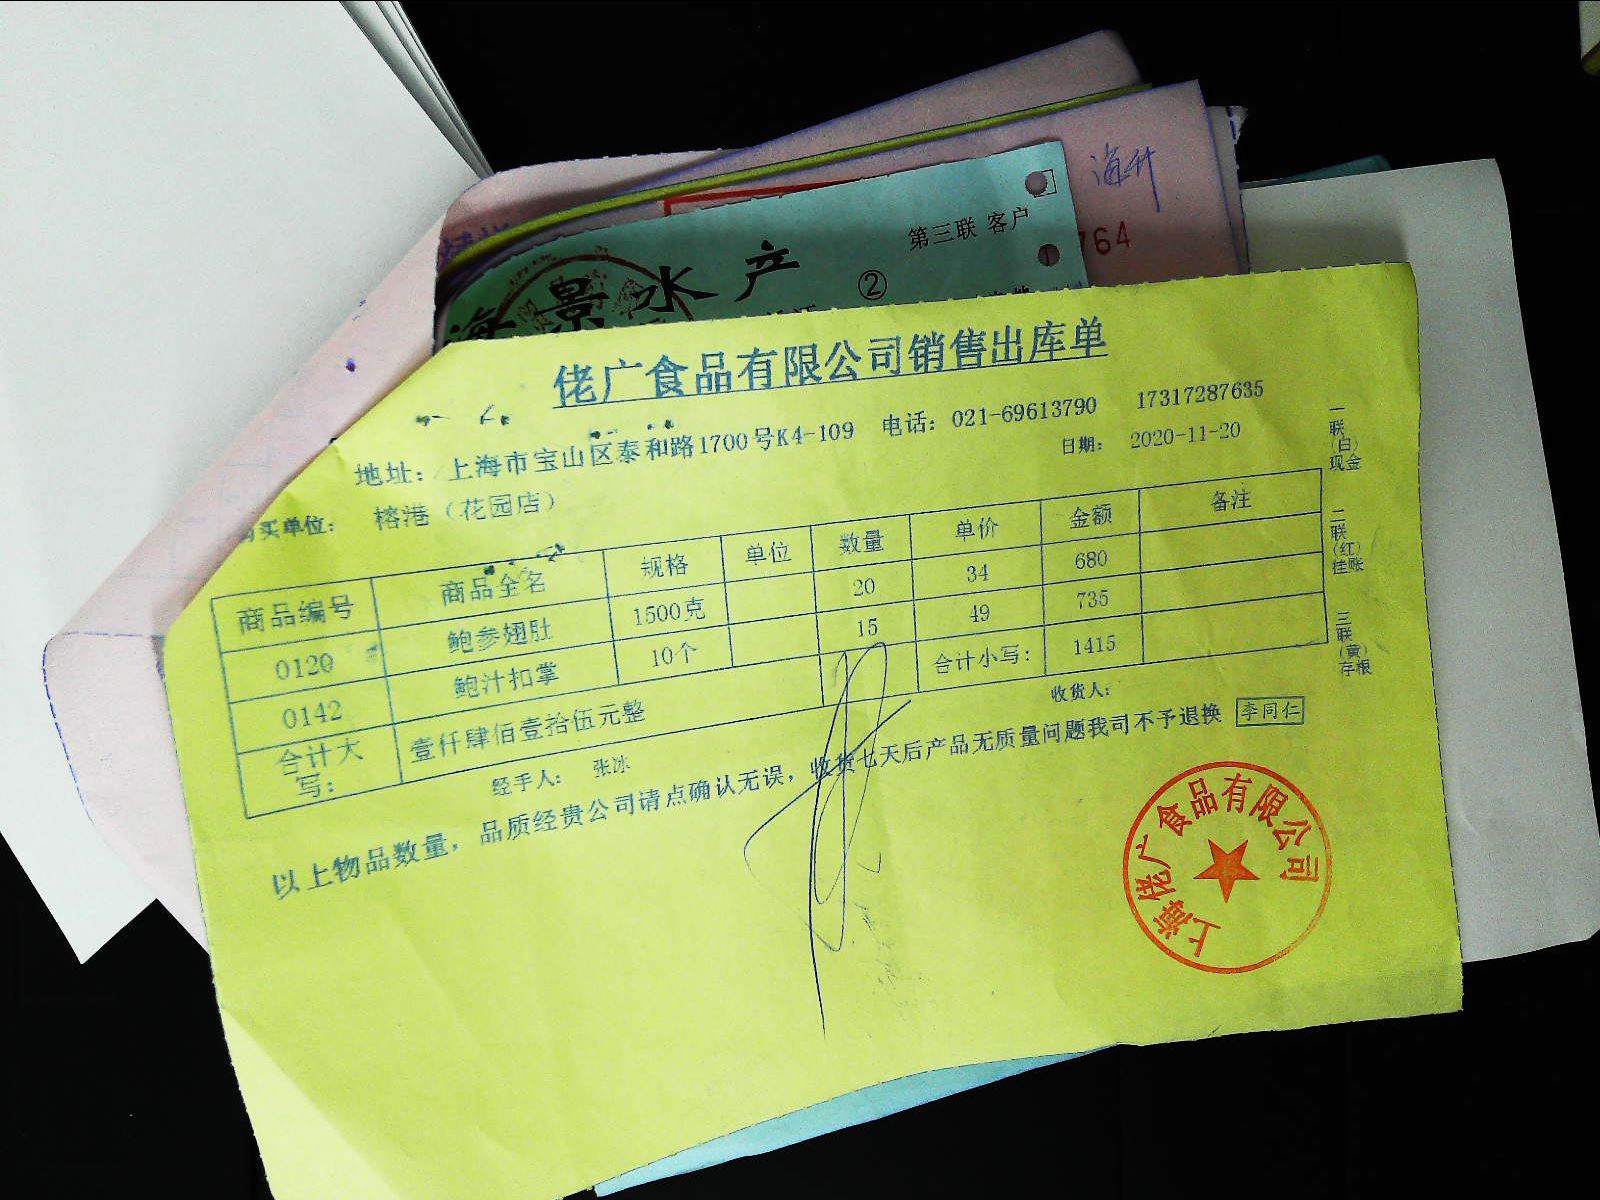 海升
764
第三联 客户
海景水产
②
佬广食品有限公司销售出库单
地址: 上海市宝山区泰和路1700号K4-109 电话: 021-69613790 17317287635
日期: 2020-11-20
购买单位: 榕港（花园店）
商品编号 商品全名 规格 单位 数量 单价 金额 备注
0120 鲍参翅肚 1500克 20 34 680
0142 鲍汁扣掌 10个 15 49 735
合计大写: 壹仟肆佰壹拾伍元整 合计小写: 1415
经手人: 张冰 收货人:
以上物品数量，品质经贵公司请点确认无误，收货七天后产品无质量问题我司不予退换 李同仁
一联(白)现金
二联(红)挂账
三联(黄)存根
上海佬广食品有限公司